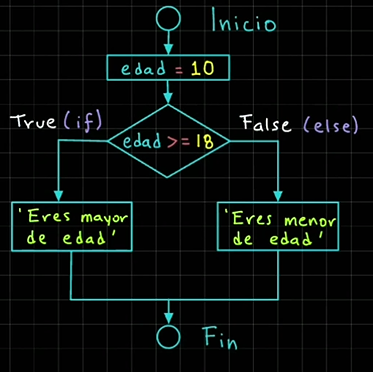 Inicio
edad = 10
True (if)
False (else)
edad >= 18
'Eres mayor
de edad'
'Eres menor
de edad'
Fin